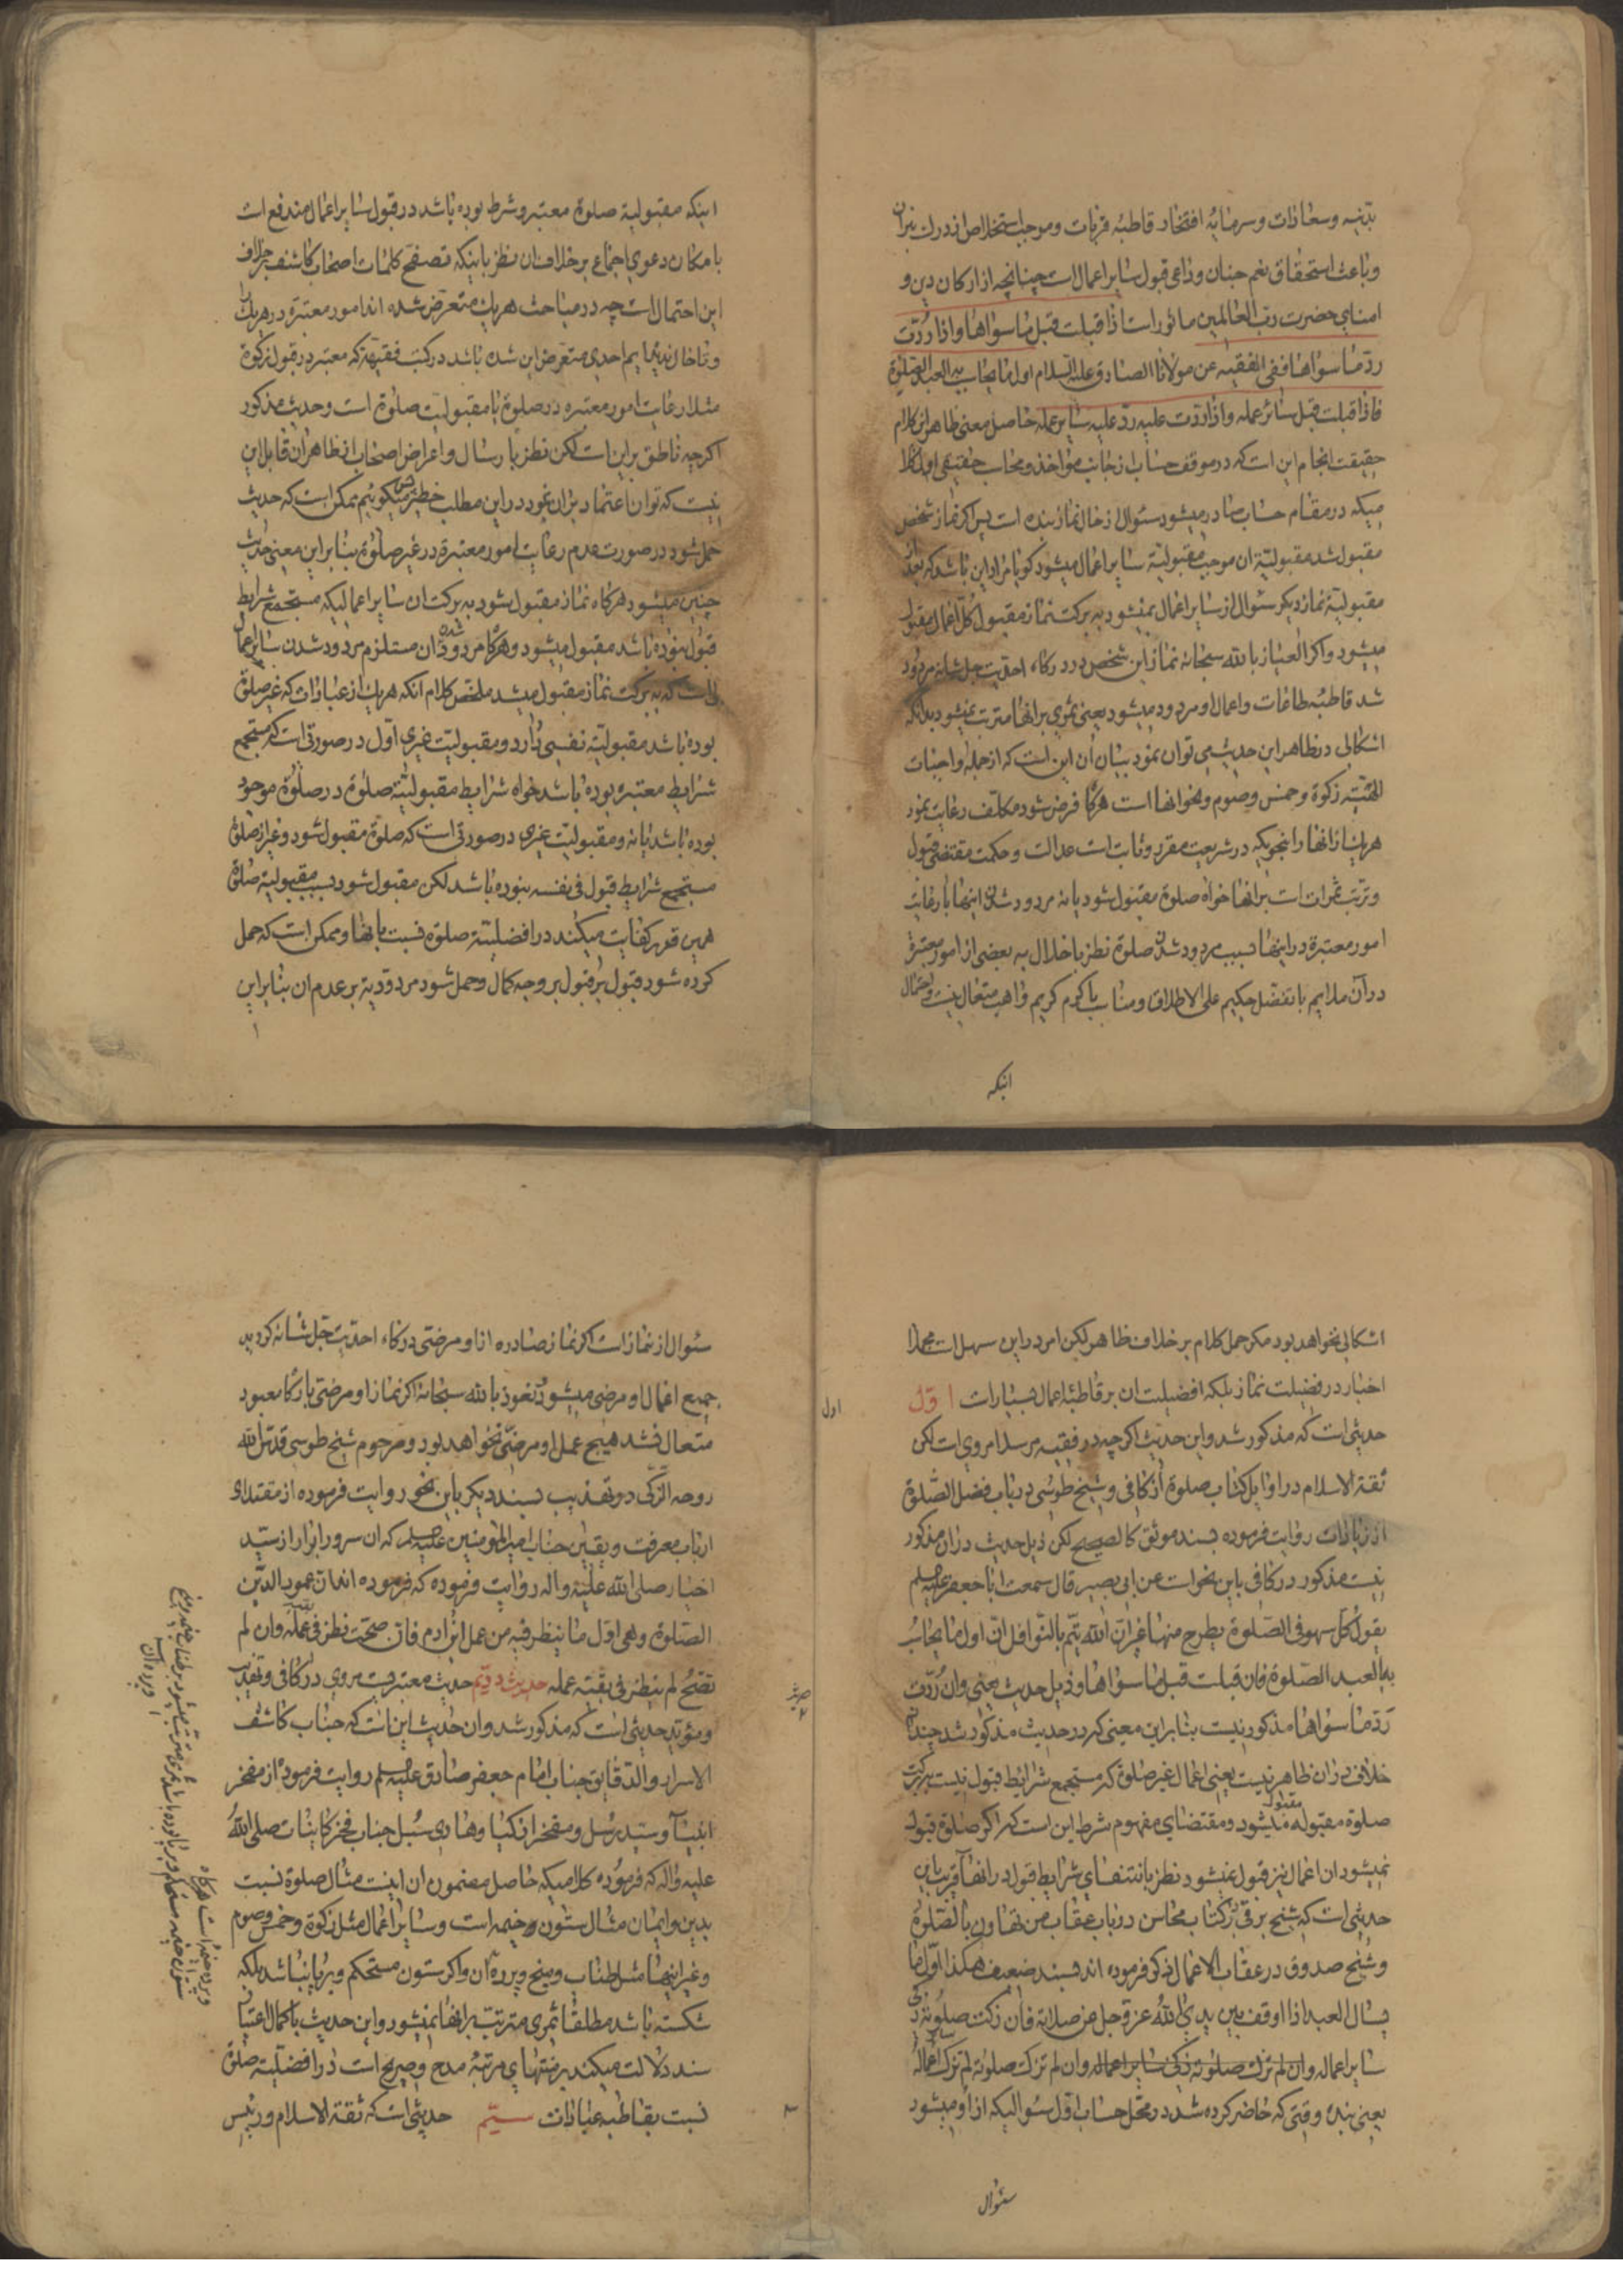 بدنیه و سعادات و سرمایهٔ افتخار قاطبهٔ قربات و موجب استخلاص از درک نیران
و باعث استحقاق نعم جنان و داعی قبول سایر اعمال است چنانچه از ارکان دین و
امنای حضرت رب العالمین ماثور است اذا قبلت قبل ما سواها و اذا ردّت
ردّ ما سواها ففی الفقیه عن مولانا الصادق علیه السلام اول ما یحاسب به العبد الصلوة
فاذا قبلت قبل سائر عمله و اذا ردّت علیه ردّ علیه سایر عمله حاصل معنی ظاهر این کلام
حقیقت انجام این است که در موقف حساب از جانب مؤاخذ و محاسب حقیقی اول کلا
میکه در مقام حساب صادر میشود سئوال از حال نماز بنده است پس اگر نماز شخص
مقبول شد مقبولیّة ان موجب مقبولیّة سایر اعمال میشود گویا مراد این باشد که بعد از
مقبولیّة نماز دیگر سئوال از سایر اعمال نمیشود به برکت نماز مقبول کلّ اعمال مقبول
میشود و اگر العیاذ بالله سبحانه نماز این شخص در درکاه احدیت جل شانه مردود
شد قاطبهٔ طاعات و اعمال او مردود میشود یعنی ثمری بر انها مترتب نمیشود بدانکه
اشکالی در ظاهر این حدیث می توان نمود بیان ان این است که از جمله واجبات
الهیّه زکوة و خمس و صوم و نحو انها است هرگاه فرض شود مکلف رعایت نمود
هریک از انها را بنحویکه در شریعت مقرر و ثابت است عدالت و حکمت مقتضی قبول
و ترتب ثمرات است بر انها خواه صلوة مقبول شود یا نه مردود شدن اینها با رعایت
امور معتبرة در اینها بسبب مردود شدن صلوة نظر باخلال به بعضی از امور معتبرة
در آن ملایم با تفضل حکیم علی الاطلاق و مناسب با کرم کریم واهب متعال نیست و احتمال
اینکه
اینکه مقبولیة صلوة معتبر و شرط بوده باشد در قبول سایر اعمال مندفع است
با مکان دعوی اجماع بر خلاف ان نظر باینکه تصفح کلمات اصحاب کاشف بر خلاف
این احتمال است چه در مباحث هریک متعرض شده اند امور معتبرة در هریک را
و تا حال ندیدیم احدی متعرض این شده باشد در کتب فقهیة که معتبر در قبول زکوة
مثلا رعایت امور معتبره در صلوة یا مقبولیت صلوة است و حدیث مذکور
اگرچه ناطق براین است لکن نظر بارسال و اعراض اصحاب از ظاهر ان قابل این
نیست که توان اعتماد بران نمود در این مطلب خطیر پس میگوئیم ممکن است که حدیث
حمل شود در صورت عدم رعایت امور معتبرة در غیر صلوة بنابر این معنی حدیث
چنین میشود هرگاه نماز مقبول شود به برکت ان سایر اعمالیکه مستجمع شرایط
قبول نبوده باشد مقبول میشود و هرگاه مردود شده ان مستلزم مردود شدن سایر اعما
لی است که به برکت نماز مقبول میشد ملخص کلام انکه هریک از عبادات که غیر صلوة
بوده باشد مقبولیّة نفسی دارد و مقبولیّت غیری اوّل در صورتی است که مستجمع
شرایط معتبره بوده باشد خواه شرایط مقبولیّة صلوة در صلوة موجود
بوده باشد یا نه و مقبولیت غیری در صورتی است که صلوة مقبول شود و غیر از صلوة
مستجمع شرایط قبول فی نفسه نبوده باشد لکن مقبول شود بسبب مقبولیة صلوة
همین قدر کفایت میکند در افضلیّة صلوة نسبت بانها و ممکن است که حمل
کرده شود قبول بر قبول بر وجه کمال و حمل شود مردودیة بر عدم ان بنابر این
اشکالی نخواهد بود مکر حمل کلام بر خلاف ظاهر لیکن امر در این سهل است مجملا
اخبار در فضیلت نماز بلکه افضیلیت ان بر قاطبهٔ اعمال بسیار است اوّل
اول
حدیثی است که مذکور شد و این حدیث اگرچه در فقیه مرسلا مروی است لکن
ثقة الاسلام در اوایل کتاب صلوة از کافی و شیخ طوسی در باب فضل الصّلوة
از زیادات روایت فرموده بسند موثق کالصحیح لکن ذیل حدیث در ان مذکور
نیست مذکور در کافی باین نحو است عن ابی بصیر قال سمعت ابا جعفر علیه السلم
یقول کل سهو فی الصّلوة یطرح منها غیر انّ الله یتمّ بالنّوافل انّ اول ما یحاسب
به العبد الصلوة فان قبلت قبل ما سواها و ذیل حدیث یعنی و ان ردّت
ردّ ما سواها مذکور نیست بنابر این معنی که در حدیث مذکور شد چندان
خلاف در ان ظاهر نیست یعنی اعمال غیر صلوة که مستجمع شرایط قبول نیست ببرکت
صلوة مقبوله مقبول میشود و مقتضای مفهوم شرط این است که اگر صلوة قبول
نمیشود ان اعمال نیز قبول نمیشود نظر بانتفای شرایط قبول در انها قریب باین
حدیثی است که شیخ برقی در کتاب محاسن در باب عقاب من تهاون بالصّلوة
و شیخ صدوق در عقاب الاعمال ذکر فرموده اند بسند ضعیف هکذا اوّل ما
یسال العبد اذا اوقف بین یدی الله عز و جل عن صلاته فان زکت صلوته زکی
سایر عمله و ان لم تزک صلوته لم تزک اعماله
یعنی بنده وقتی که حاضر کرده شد در محل حساب اول سئوالیکه از او میشود
سئوال
سئوال از نماز است اگر نماز صادره از او مرضیّ درکاه احدیّت جل شانه کردید
جمیع اعمال او مرضی میشود نعوذ بالله سبحانه اگر نماز او مرضیّ بارکاه معبود
متعال نشد هیچ عمل او مرضیّ نخواهد بود و مرحوم شیخ طوسی قدس الله
روحه الزکی در تهذیب بسند دیگر باین نحو روایت فرموده از مقتدای
ارباب معرفت و یقین جناب امیر المؤمنین علیه السلم که ان سرور ابرار از سید
اخیار صلی الله علیه و اله روایت فرموده که فرموده اند ان عمود الدّین
الصلوة و هی اوّل ما ینظر فیه من عمل ابن ادم فان صحّت نظر فی عمله و ان لم
تصحّ لم ینظر فی بقیّة عمله حدیث دویّم حدیث معتبریست مروی در کافی و تهذیب
حدیث ۲
و مؤید حدیثی است که مذکور شد و ان حدیث این است که جناب کاشف
الاسرار و الدقایق جناب امام جعفر صادق علیه السلم روایت فرموده از مفخر
انبیآ و سیّد رسل و مفخر ازکیا و هادی سُبل جناب فخر کاینات صلی اللهُ
علیه و اله که فرموده کلامیکه حاصل مضمون ان اینست مثال صلوة نسبت
بدین و ایمان مثال ستون و خیمه است و سایر اعمال مثل زکوة و خمس و صوم
و غیر اینها مثل طناب و میخ و پرده ان و اگر ستون مستحکم و برپا نباشد بلکه
شکسته باشد مطلقا ثمری مترتب بر انها نمیشود و این حدیث با کمال اعتبار
سند دلالت میکند بر منتهای مرتبهٔ مدح و صریح است در افضلیّة صلوة
نسبت بقاطبه عبادات سیّم حدیثی است که ثقة الاسلام و رئیس
۳
و پرده خیمه است هرگاه
ستون خیمه مستحکم و برپا بوده باشد ثمری مترتب میشود بر طناب خیمه و میخ
و پرده ان